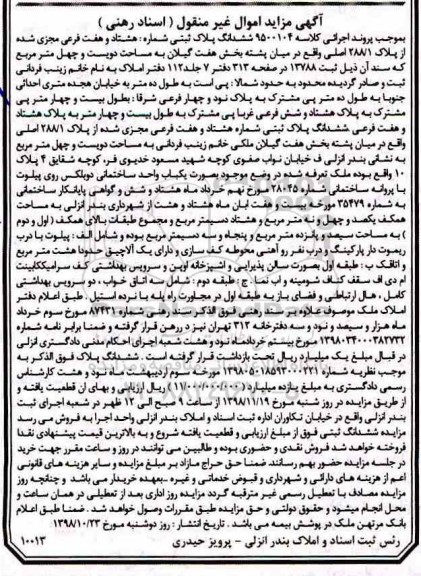 آگهی مزاید اموال غیر منقول ( اسناد رهنی )
بموجب پرونده اجرائی کلاسه ۹۵۰۰۱۰۴ ششدانگ پلاک ثبتی شماره : هشتاد و هفت فرعی مجزی شده
از پلاک ۲۸۸/۱ اصلی واقع در میان پشته بخش هفت گیلان به مساحت دویست و چهل متر مربع
که سند آن ذیل ثبت ۱۳۷۸۸ در صفحه ۳۱۳ دفتر ۷ جلد ۱۱۲ دفتر املاک به نام خانم زینب فردانی
ثبت و صادر گردیده محدود به حدود شمالا : پی است به طول ده متر به خیابان هجده متری احداثی
جنوبا به طول ده متر پی مشترک به پلاک نود و چهار فرعی شرقا : بطول بیست و چهار متر پی
مشترک به پلاک هشتاد و شش فرعی غربا پی مشترک به طول بیست و چهار متر به پلاک هشتاد
و هفت فرعی ششدانگ پلاک ثبتی شماره هشتاد و هفت فرعی مجزی شده از پلاک ۲۸۸/۱ اصلی
واقع در میان پشته بخش هفت گیلان ملکی خانم زینب فردانی به مساحت دویست و چهل متر مربع
به نشانی بندر انزلی خ خیابان نواب صفوی کوچه شهید مسعود خدیوی فر، کوچه شقایق ۴ پلاک
۱۰ واقع بوده ملک تعرفه شده در موجود بصورت یکباب واحد ساختمانی دوبلکس روی پیلوت
با پروانه ساختمانی شماره ۲۸۰۴۵ مورخ نهم خرداد ماه هشتاد و شش و گواهی پایانکار ساختمانی
به شماره ۳۵۴۷۹ مورخه بیست و هفت ابان ماه هشتاد و هشت از شهرداری بندر انزلی به مساحت
همکف یکصد و چهل و نه متر مربع و هشتاد دسیمتر مربع و مجموع طبقات بالای همکف ( اول و دوم
) به مساحت سیصد و پانزده متر مربع و پنجاه و سه دسیمتر مربع بوده و شامل الف : پیلوت با درب
ریموت دار پارکینگ و درب نفر رو آهنی محوطه کف سازی و دارای یک آلاچیق حدودا هشت متر مربع
و اتاقک ب : طبقه اول بصورت سالن پذیرایی و آشپزخانه اوپن و سرویس بهداشتی کف سرامیک کابینت
ام دی اف سقف کناف شومینه و آب نما . ج : طبقه دوم : شامل سه اتاق خواب ، دو سرویس بهداشتی
کامل ، هال ارتباطی و فضای باز به طبقه اول در مجاورت راه پله با نرده استیل . طبق اعلام دفتر
املاک ملک موصوف علاوه بر سند رهنی فوق الذکر سند رهنی شماره ۸۷۴۳۱ مورخ سوم خرداد
ماه هزار و سیصد و نود و سه دفترخانه ۳۱۲ تهران نیز در رهن قرار گرفته و ضمنا برابر نامه شماره
۱۳۹۸۰۳۴۰۰۰۳۸۲۷۳۲ مورخ بیستم خردادماه نود و هشت شعبه اجرای احکام مدنی دادگستری انزلی
در قبال مبلغ یک میلیارد ریال تحت بازداشت قرار گرفته است . ششدانگ پلاک فوق الذکر به
موجب نظریه شماره ۱۳۹۸۰۵۰۱۸۵۲۳۰۰۰۲۲۱ مورخه سوم اردیبهشت ماه نود و هشت کارشناس
رسمی دادگستری به مبلغ یازده میلیارد ( ۱۱/۰۰۰/۰۰۰/۰۰۰ ) ریال ارزیابی و بهای آن قطعیت یافته و
از طریق مزایده در روز شنبه مورخ ۱۳۹۸/۱۱/۱۹ از ساعت ۹ صبح الی ۱۲ ظهر در شعبه اجرای ثبت
بندر انزلی واقع در خیابان تکاوران اداره ثبت اسناد و املاک بندر انزلی واحد اجرا به فروش می رسد
مزایده ششدانگ ثبتی فوق از مبلغ ارزیابی و قطعیت یافته شروع و به بالاترین قیمت پیشنهادی نقدا
فروخته خواهد شد فروش نقدی و حضوری بوده و طالبین می توانند در روز و ساعت مقرر جهت خرید
در جلسه مزایده حضور بهم رسانند. ضمنا حق حراج مازاد بر مبلغ مزایده و سایر هزینه های قانونی
اعم از هزینه های دارائی و شهرداری و قبوض خدماتی و غیره ..بعهده خریدار می باشد و چنانچه روز
مزایده مصادف با تعطیل رسمی غیر مترقبه گردد مزایده روز اداری بعد از تعطیلی در همان ساعت و
محل انجام میشود و حقوق دولتی و حق مزایده طبق مقررات وصول خواهد شد. ضمنا طبق اعلام
بانک مرتهن ملک در پوشش بیمه می باشد . تاریخ انتشار : روز دوشنبه مورخ ۱۳۹۸/۱۰/۲۳
رئس ثبت اسناد و املاک بندر انزلی - پرویز حیدری
۱۰۰۱۳